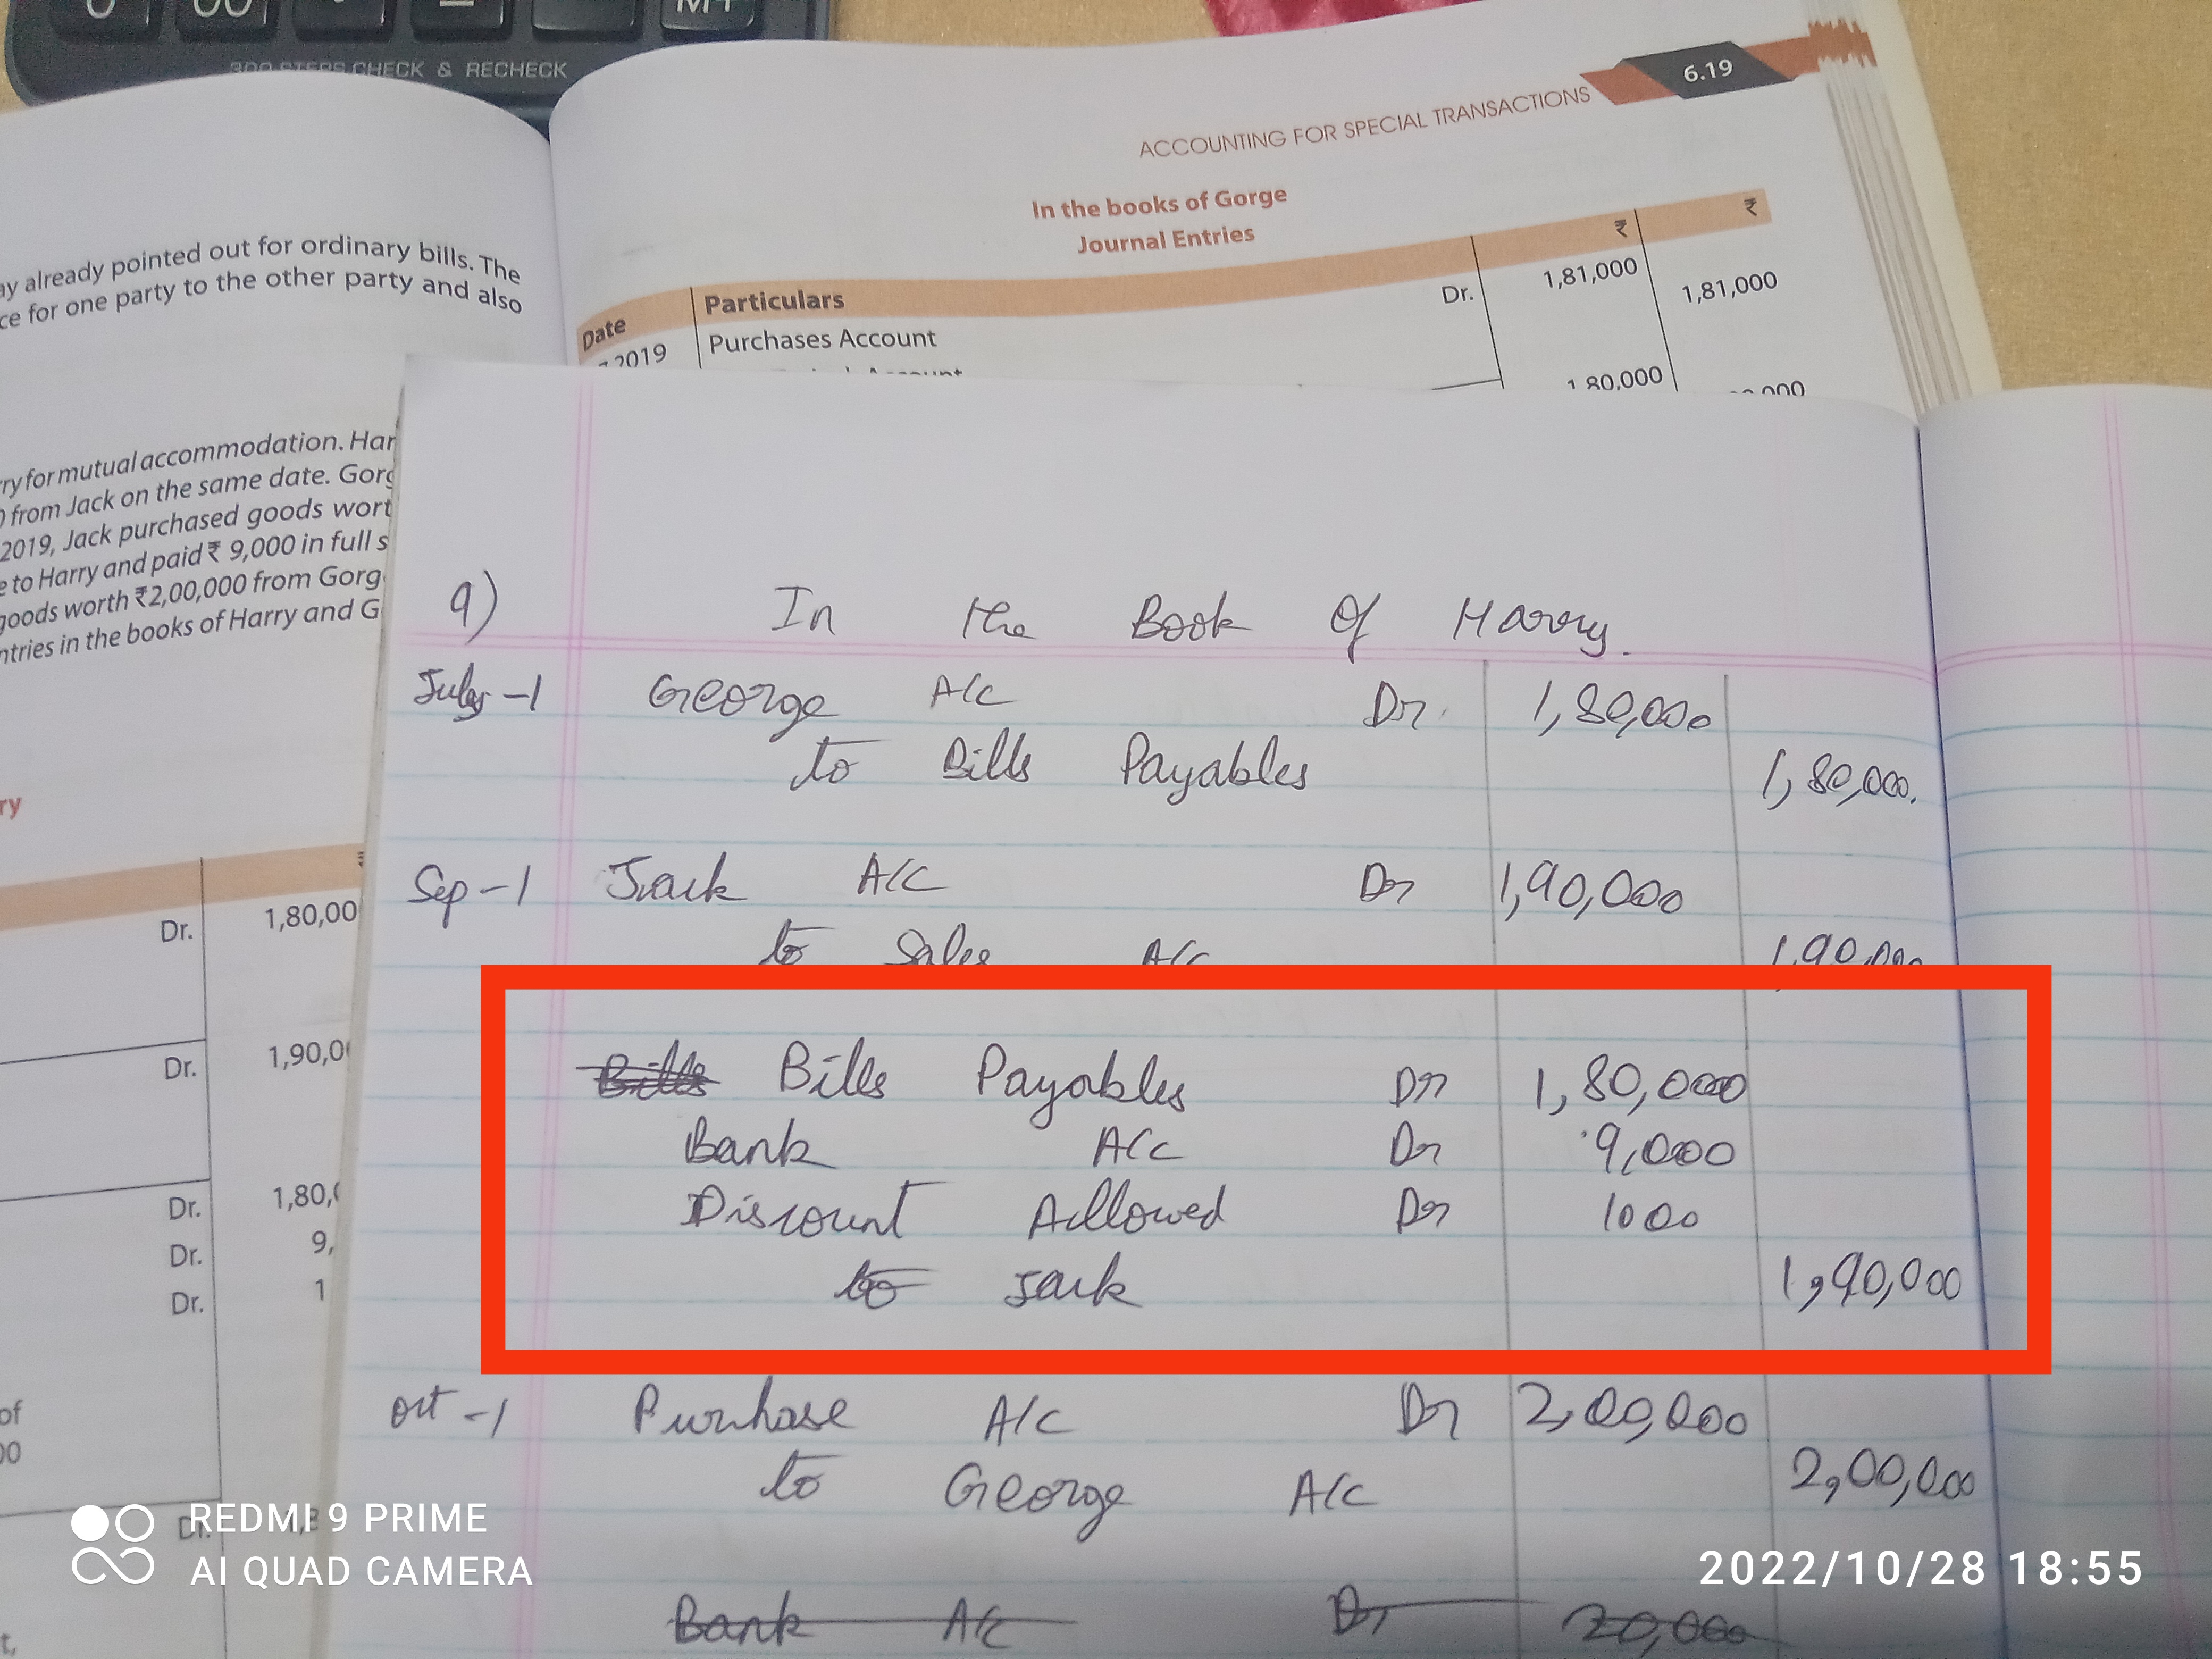 300 STEPS CHECK & RECHECK
6.19
ACCOUNTING FOR SPECIAL TRANSACTIONS
In the books of Gorge
Journal Entries
₹ ₹
Date Particulars
2019 Purchases Account Dr. 1,81,000
1,81,000
Account 1,80,000
ay already pointed out for ordinary bills. The
ce for one party to the other party and also
ry for mutual accommodation. Har
0 from Jack on the same date. Gorg
2019, Jack purchased goods wort
e to Harry and paid ₹ 9,000 in full s
goods worth ₹2,00,000 from Gorg
ntries in the books of Harry and G
ry
₹
Dr. 1,80,00
Dr. 1,90,0
Dr. 1,80,
Dr. 9,
Dr. 1
of
00
Dr.
t,
9) In the Book Of Harry.
July-1 George A/C Dr. 1,80,000
to Bills Payables 1,80,000.
Sep-1 Jack A/C Dr 1,90,000
to Sales A/c 1,90,000
Bills Bills Payables Dr 1,80,000
Bank A/c Dr 9,000
Discount Allowed Dr 1000
to Jack 1,90,000
Oct-1 Purchase A/C Dr 2,00,000
to George A/C 2,00,000
Bank A/c Dr 20,000
REDMI 9 PRIME
AI QUAD CAMERA
2022/10/28 18:55